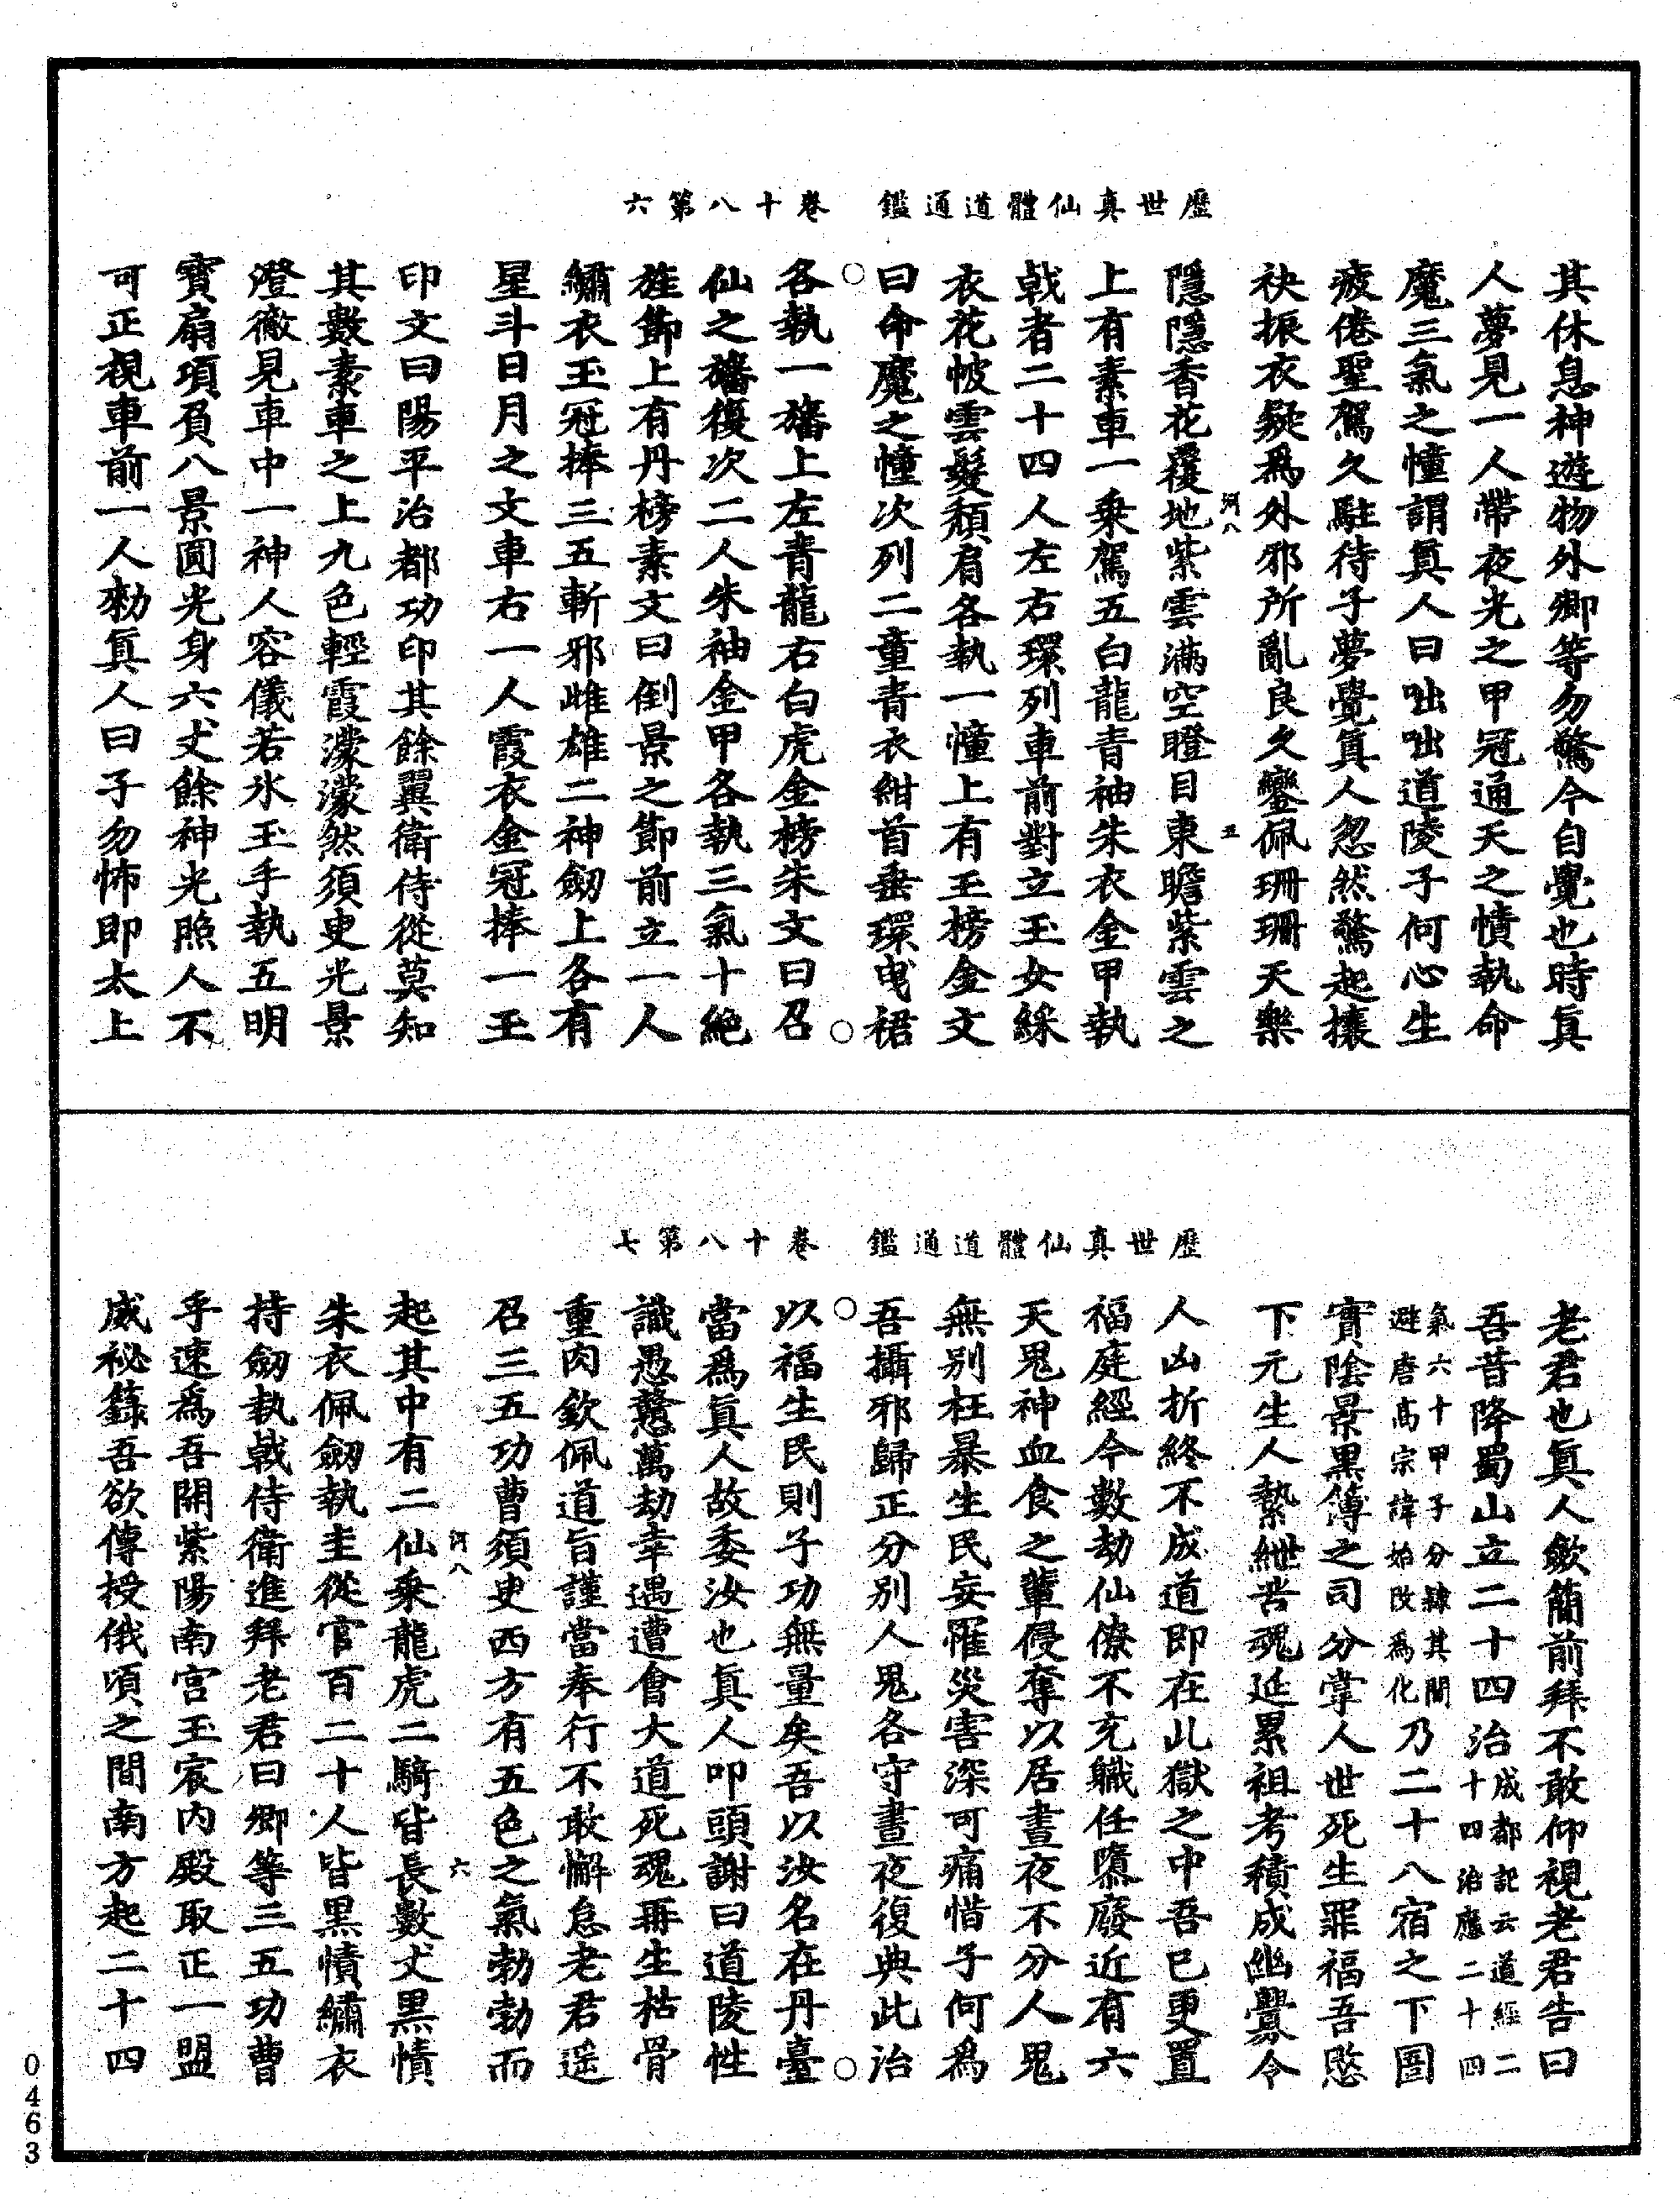 歷世真仙體道通鑑　卷十八第六
其休息神遊物外卿等勿驚今自覺也時眞
人夢見一人帶夜光之甲冠通天之幘執命
魔三氣之幢謂眞人曰咄咄道陵子何心生
疲倦聖駕久駐待子夢覺眞人忽然驚起攘
袂振衣疑爲外邪所亂良久鑾佩珊珊天樂
河八　五
隱隱香花覆地紫雲滿空瞪目東瞻紫雲之
上有素車一乗駕五白龍青袖朱衣金甲執
戟者二十四人左右環列車前對立玉女綵
衣花帔雲髮頳肩各執一幢上有玉榜金文
曰命魔之幢次列二童青衣紺首垂環曳裙
各執一旛上左青龍右白虎金榜朱文曰召
仙之旛復次二人朱袖金甲各執三氣十絕
旌節上有丹榜素文曰倒景之節前立一人
繡衣玉冠捧三五斬邪雌雄二神劒上各有
星斗日月之文車右一人霞衣金冠捧一玉
印文曰陽平治都功印其餘翼衛侍從莫知
其數素車之上九色輕霞濛濛然須臾光景
澄徹見車中一神人容儀若氷玉手執五明
寳扇項負八景圓光身六丈餘神光照人不
可正視車前一人勑眞人曰子勿怖即太上
歷世真仙體道通鑑　卷十八第七
老君也眞人斂簡前拜不敢仰視老君告曰
吾昔降蜀山立二十四治成都記云道經二十四治應二十四
氣六十甲子分隷其間避唐高宗諱始改爲化乃二十八宿之下圄
實陰景黒簿之司分掌人世死生罪福吾愍
下元生人縶紲苦魂延累祖考積成幽釁令
人凶折終不成道即在此獄之中吾已更置
福庭經今數劫仙僚不充職任隳廢近有六
天鬼神血食之輩侵奪以居晝夜不分人鬼
無别枉暴生民妄罹災害深可痛惜子何爲
吾攝邪歸正分别人鬼各守晝夜復典此治
以福生民則子功無量矣吾以汝名在丹臺
當爲眞人故委汝也眞人叩頭謝曰道陵性
識愚戇萬劫幸遇遭會大道死魂再生枯骨
重肉欽佩道旨謹當奉行不敢懈怠老君遥
召三五功曹須史西方有五色之氣勃勃而
河八　六
起其中有二仙乗龍虎二騎皆長數丈黒幘
朱衣佩劒執圭從官百二十人皆黒幘繡衣
持劒執戟侍衛進拜老君曰卿等三五功曹
乎速爲吾開紫陽南宫玉宸内殿取正一盟
威祕籙吾欲傳授俄頃之間南方起二十四
0463